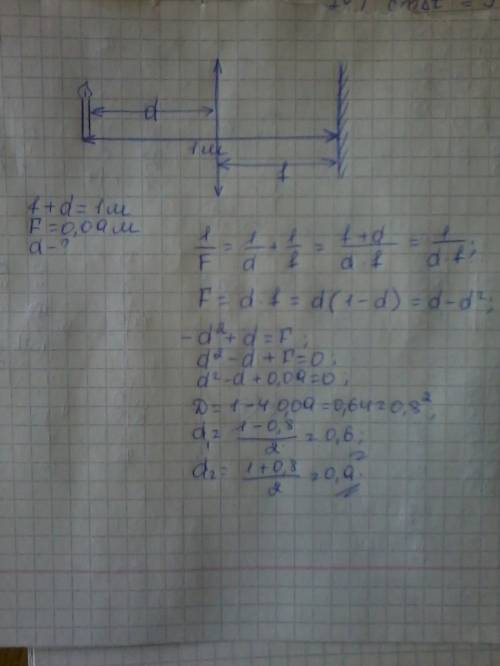 d
1м
f
f+d=1м
F=0,09м
d-?
1/F = 1/d + 1/f = (f+d)/(d·f) = 1/(d·f);
F = d·f = d(1-d) = d-d²;
-d²+d=F;
d²-d+F=0;
d²-d+0,09=0;
D=1-4·0,09=0,64=0,8²;
d₁= (1-0,8)/2 = 0,6;
d₂= (1+0,8)/2 = 0,9.